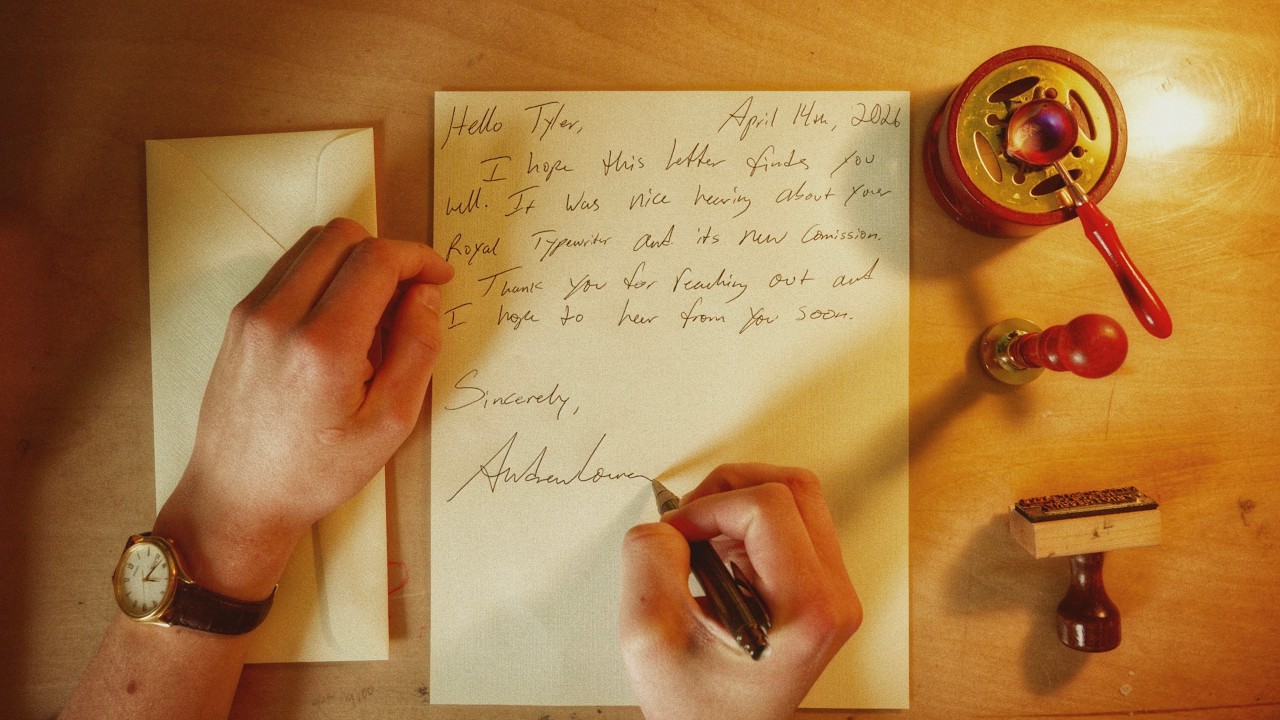 Hello Tyler, April 14th, 2026
I hope this letter finds you
well. It was nice hearing about your
Royal Typewriter and its new Comission.
Thank you for reaching out and
I hope to hear from you soon.
Sincerely,
Andrew